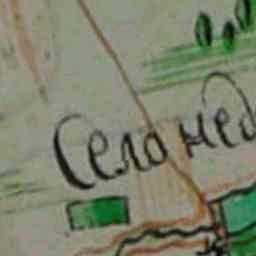 Село нед